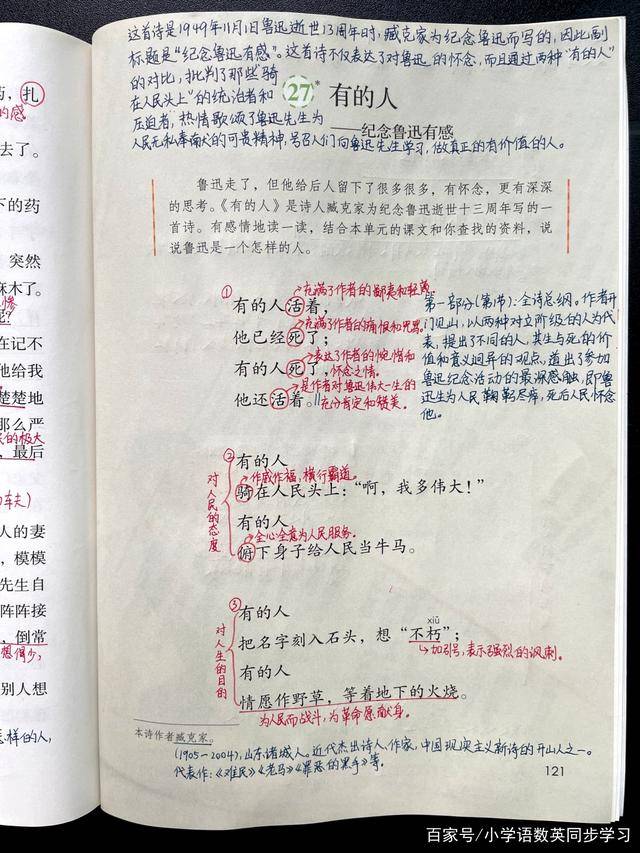 药，扎
的感
去了。
下的药
突然
麻木了。
惨
呢？
在记不
他给我
楚楚地
那么严
民的极大
，最后
车夫)
人的妻
，模模
先生自
阵阵接
，倒常
想得少，
别人想
怎样的人，
这首诗是1949年11月1日鲁迅逝世13周年时，臧克家为纪念鲁迅而写的，因此副
标题是“纪念鲁迅有感”。这首诗不仅表达了对鲁迅的怀念，而且通过两种“有的人”
的对比，批判了那些“骑
在人民头上”的统治者和
压迫者，热情歌颂了鲁迅先生为
人民无私奉献的可贵精神，号召人们向鲁迅先生学习，做真正的有价值的人。
27* 有的人
——纪念鲁迅有感
鲁迅走了，但他给后人留下了很多很多，有怀念，更有深深
的思考。《有的人》是诗人臧克家为纪念鲁迅逝世十三周年写的一
首诗。有感情地读一读，结合本单元的课文和你查找的资料，说
说鲁迅是一个怎样的人。
①
充满了作者的鄙夷和轻蔑。
有的人活着，
充满了作者的痛恨和咒骂。
他已经死了；
表达了作者的惋惜和
有的人死了，怀念之情。
是作者对鲁迅伟大一生的
他还活着。‖充分肯定和赞美。
第一部分(第1节)：全诗总纲。作者开
门见山，以两种对立阶级的人为代
表，提出了不同的人，其生与死的价
值和意义迥异的观点，道出了参加
鲁迅纪念活动的最深感触，即鲁
迅生为人民鞠躬尽瘁，死后人民怀念
他。
②
对人民的态度
有的人
作威作福，横行霸道。
骑在人民头上：“啊，我多伟大！”
有的人
全心全意为人民服务。
俯下身子给人民当牛马。
③
对人生的目的
有的人
xiǔ
把名字刻入石头，想“不朽”；
加引号，表示强烈的讽刺。
有的人
情愿作野草，等着地下的火烧。
为人民而战斗，为革命愿献身。
本诗作者臧克家。
(1905-2004)，山东诸城人。近代杰出诗人、作家，中国现实主义新诗的开山人之一。
代表作：《难民》《老马》《罪恶的黑手》等。
121
百家号/小学语数英同步学习